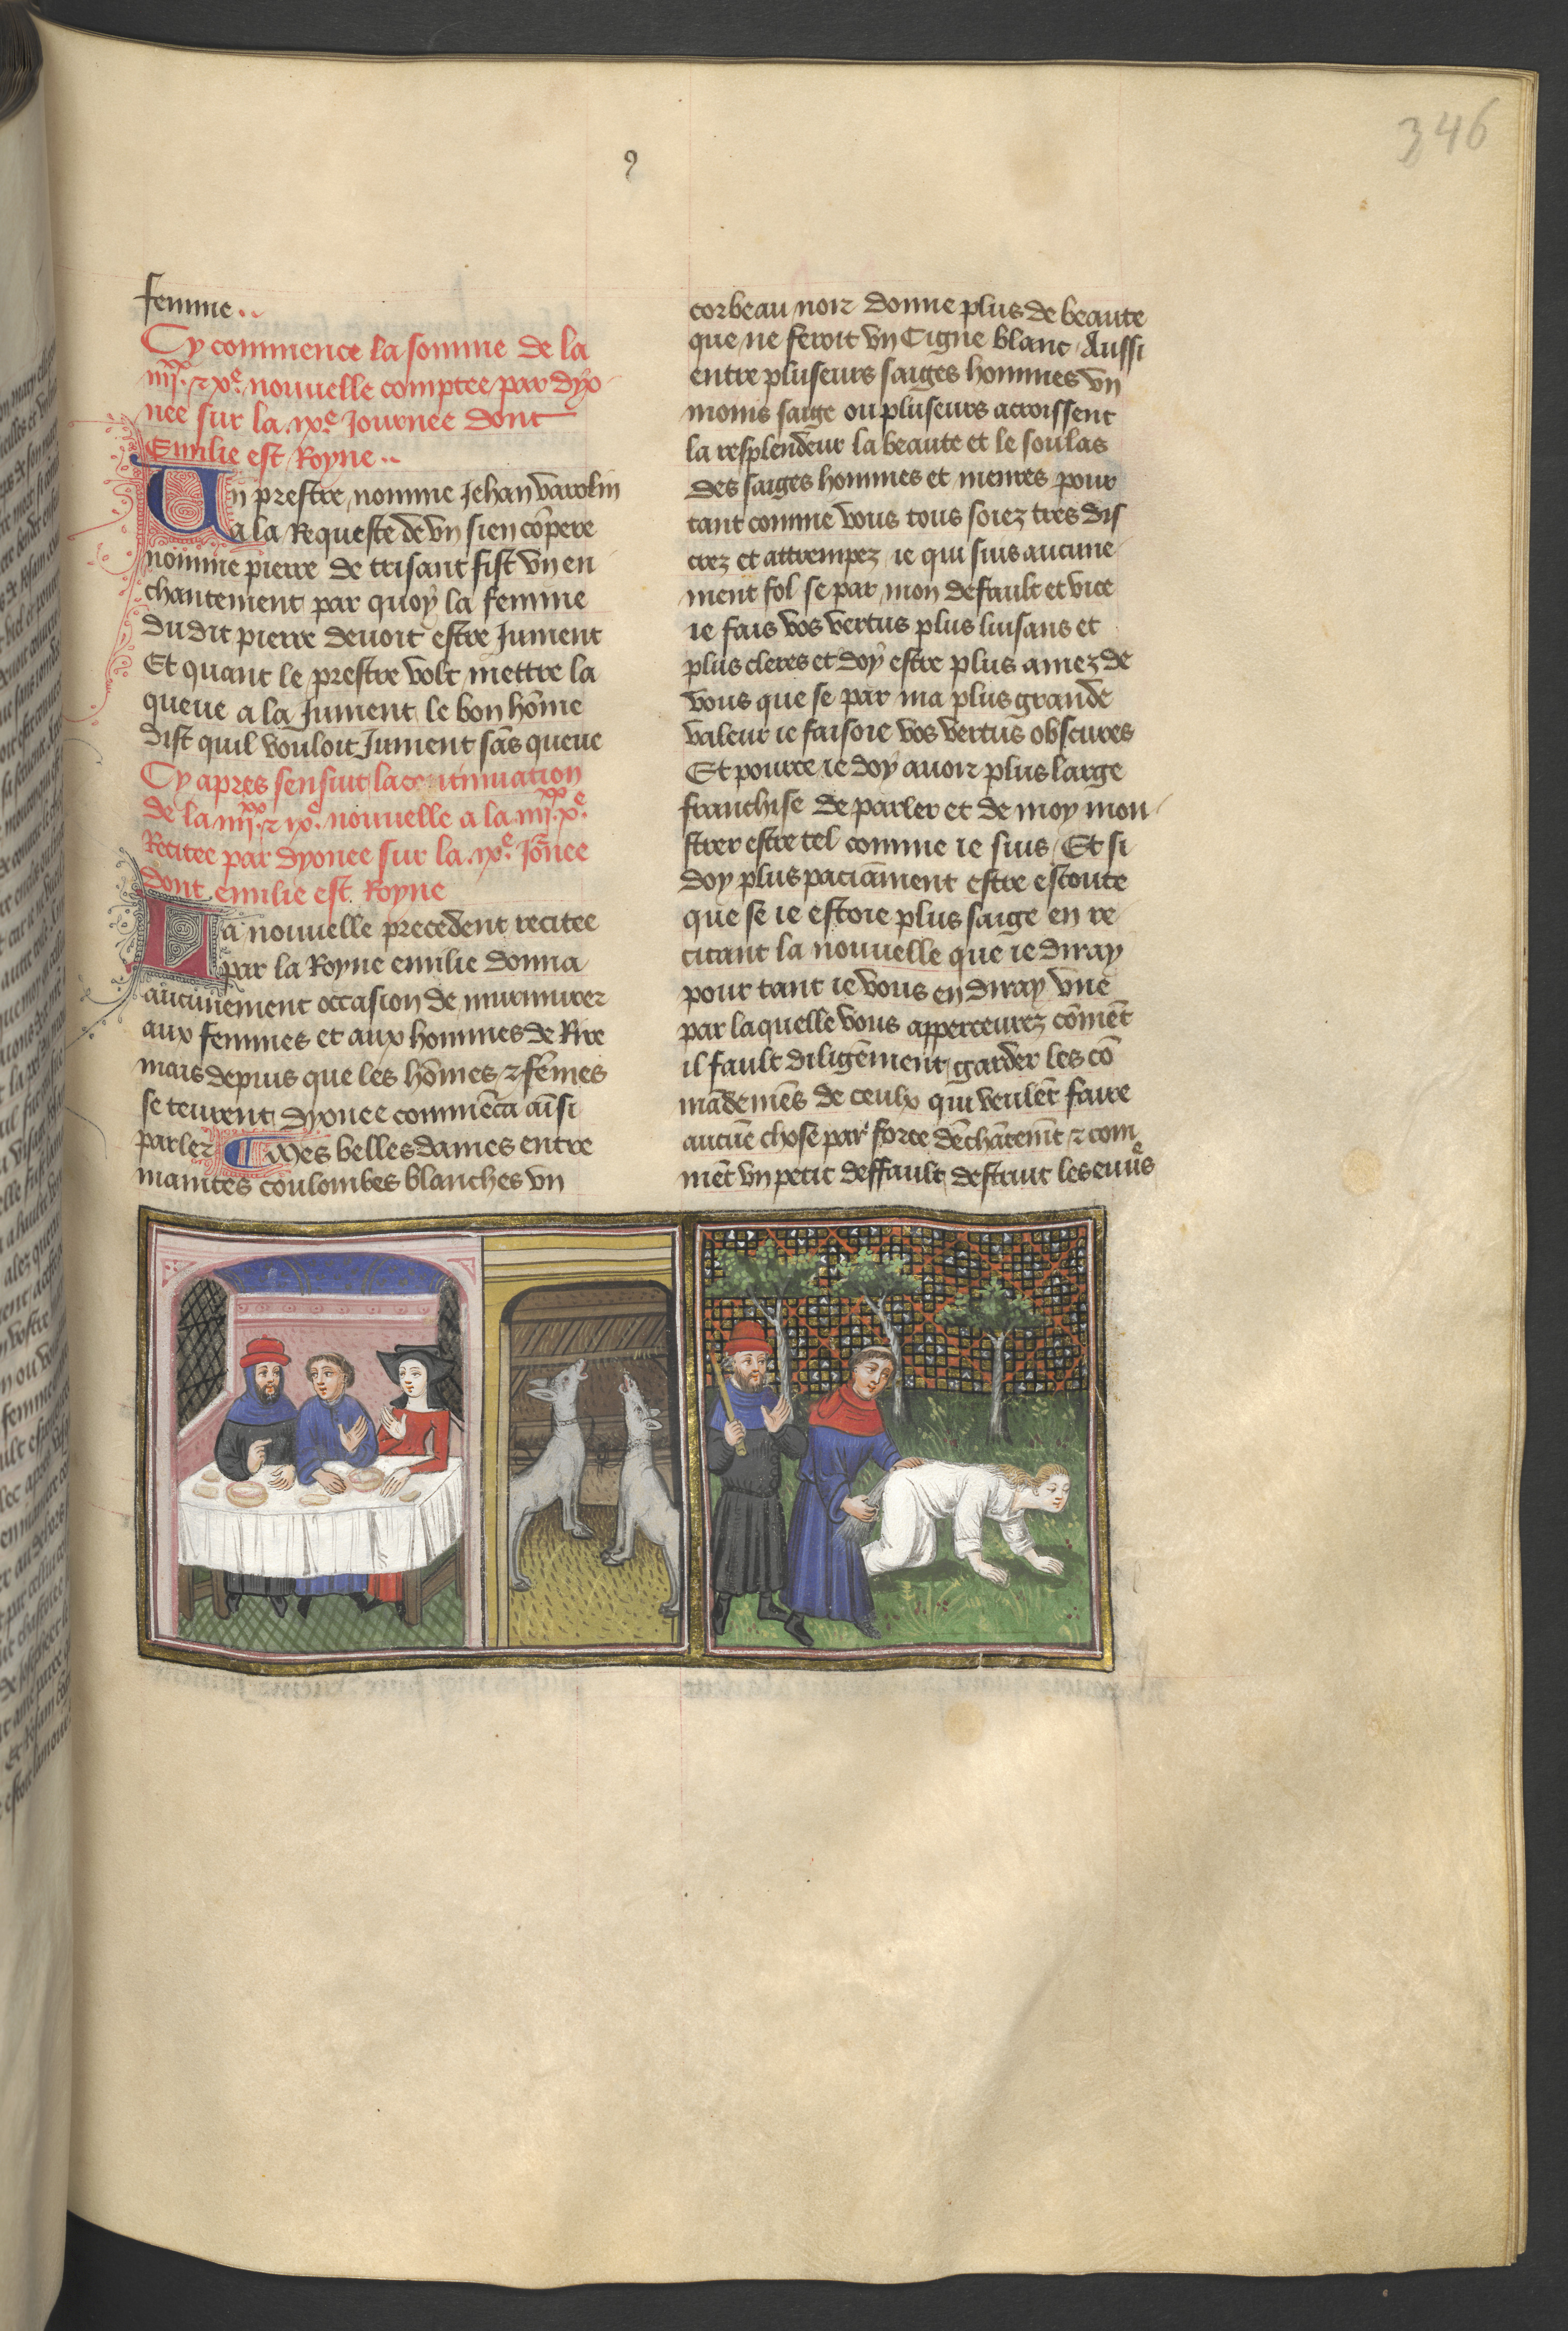 346
9
femme..
Cy commence la somme de la
iiii.xx ⁊ xe. nouuelle comptee par dyo
nee sur la .ixe. Journee dont
Emilie est Royne..
Un prestre nomme Jehan varolin
a la Requeste de vn sien cōpere
nomme pierre de trisant fist vn en
chantement par quoy la femme
du dit pierre deuoit estre Jument
Et quant le prestre volt mettre la
queue a la Jument le bon hōme
dist quil vouloit Jument sās queue
Cy apres sensuit la continuation
de la iiii.xx ⁊ ixe. nouuelle a la iiii.xx xe.
Recitee par dyonee sur la .ixe. Jōnee
dont emilie est Royne
La nouuelle precedent recitee
par la Royne emilie donna
aucunement occasion de murmurer
aux femmes et aux hommes de Rire
mais depuis que les hōmes ⁊ fēmes
se teurent dyonee commēca aīsi
parler Mes belles dames entre
maintes coulombes blanches vn
corbeau noir donne plus de beaute
que ne feroit vn Cigne blanc Aussi
entre pluseurs saiges hommes vn
moins saige ou pluseurs acroissent
la resplendeur la beaute et le soulas
des saiges hommes et meures pour
tant comme vous tous soiez tres dis
crez et attrempez ie qui suis aucune
ment fol se par mon default et vice
ie fais vos vertus plus luisans et
plus cleres et doy estre plus amez de
vous que se par ma plus grande
valeur ie faisoie vos vertus obscures
Et pource ie doy auoir plus large
franchise de parler et de moy mon
strer estre tel comme ie suis Et si
doy plus paciāment estre escoute
que se ie estoie plus saige en re
citant la nouuelle que ie diray
pour tant ie vous en diray vne
par laquelle vous apperceurez cōmēt
il fault diligēment garder les cō
mādemēs de ceulx qui veulēt faire
aucūe chose par force dēchātemt ⁊ com
mēt vn petit deffault destruit les euures